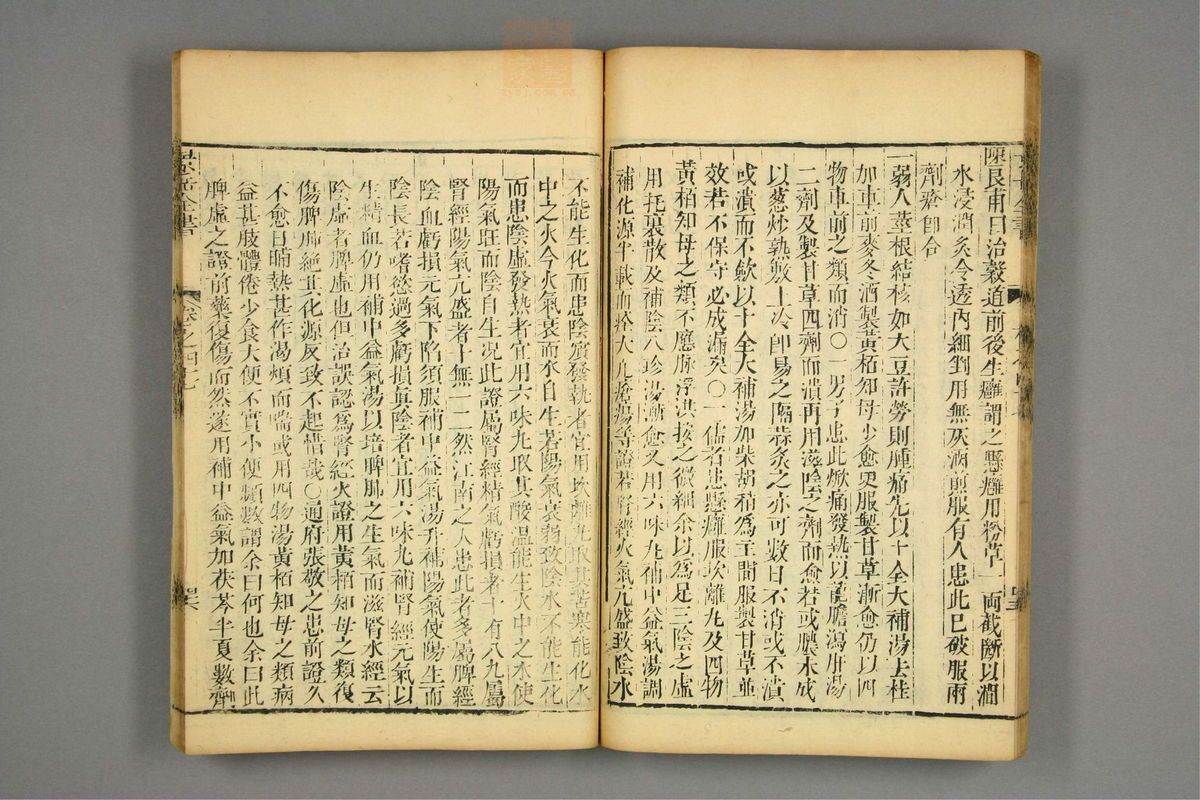 陳良甫曰治穀道前後生癰謂之懸癰用粉草一兩截斷以澗
水浸潤炙令透內細剉用無灰酒煎服有人患此已破服兩
劑瘡卽合
一弱人莖根結核如大豆許勞則腫痛先以十全大補湯去桂
加車前麥冬酒製黃栢知母少愈更服製甘草漸愈仍以四
物車前之類而消〇一男子患此焮痛發熱以龍膽瀉肝湯
二劑及製甘草四劑而潰再用滋陰之劑而愈若或膿未成
以葱炒熱敷上冷卽易之隔蒜灸之亦可數日不消或不潰
或潰而不歛以十全大補湯加柴胡稍爲主間服製甘草並
效若不保守必成漏矣〇一儒者患懸癰服坎離丸及四物
黃栢知母之類不應脉浮洪按之微細余以爲足三陰之虛
用托裏散及補陰八珍湯漸愈又用六味丸補中益氣湯調
補化源半載而痊大凡瘡瘍等證若腎經火氣亢盛致陰水
不能生化而患陰虛發熱者宜用坎離丸取其苦寒能化水
中之火令火氣衰而水自生若陽氣衰弱致陰水不能生化
而患陰虛發熱者宜用六味丸取其酸溫能生火中之水使
陽氣旺而陰自生况此證屬腎經精氣虧損者十有八九屬
腎經陽氣亢盛者十無一二然江南之人患此者多屬脾經
陰血虧損元氣下陷須服補中益氣湯升補陽氣使陽生而
陰長若嗜慾過多虧損眞陰者宜用六味丸補腎經元氣以
生精血仍用補中益氣湯以培脾肺之生氣而滋腎水經云
陰虛者脾虛也但治誤認爲腎經火證用黃栢知母之類復
傷脾肺絶其化源反致不起惜哉〇通府張敬之患前證久
不愈日晡熱甚作渴煩而喘或用四物湯黃栢知母之類病
益甚肢體倦少食大便不實小便頻數謂余曰何也余曰此
脾虛之證前藥復傷而然遂用補中益氣加茯苓半夏數劑
景岳全書
卷之四十七